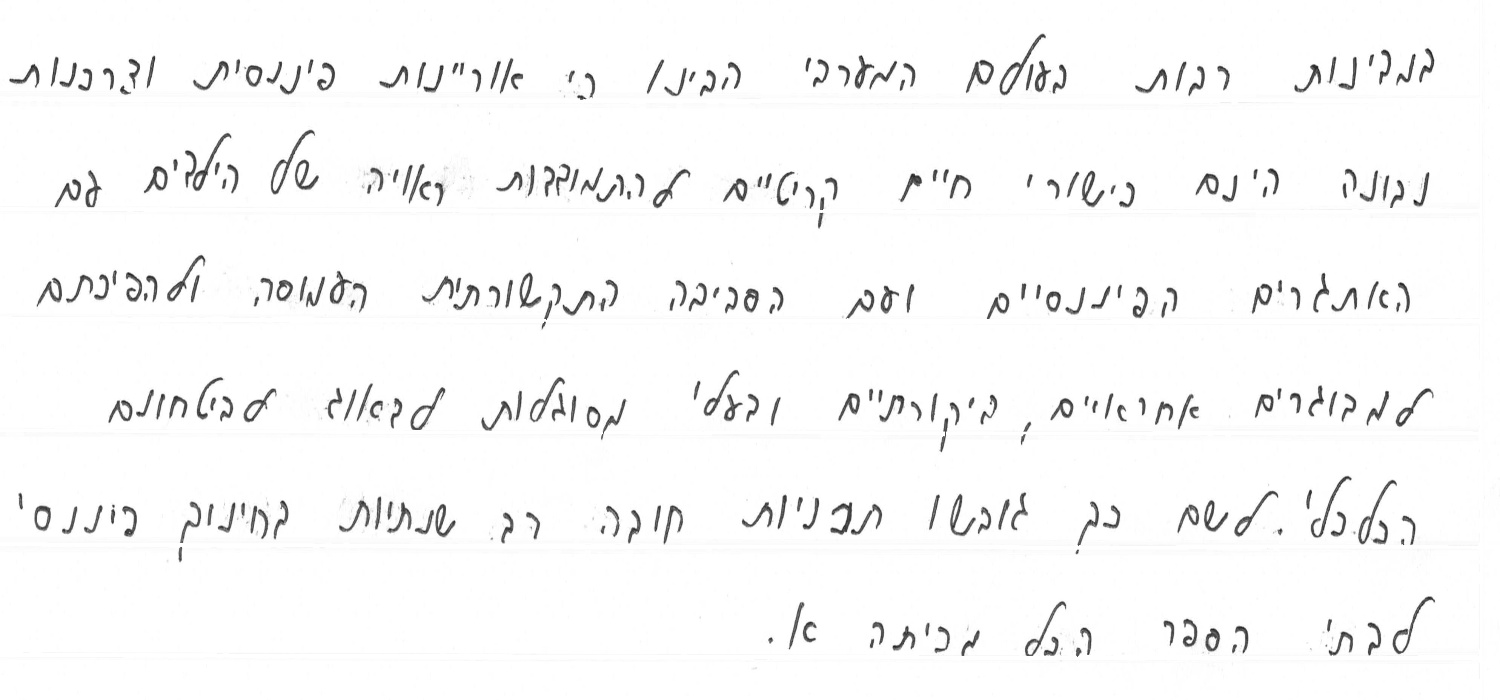 במדינות רבות בעולם המערבי הבינו כי אוריינות פיננסית וצרכנות
נבונה הינם כישורי חיים קריטיים להתמודדות ראויה של הילדים עם
האתגרים הפיננסיים ועם הסביבה התקשורתית העמוסה ולהפיכתם
למבוגרים אחראויים, ביקורתיים ובעלי מסוגלות לדאוג לביטחונם
הכלכלי. לשם כך גובשו תכניות חובה רב שנתיות בחינוך פיננסי
לבתי הספר החל מכיתה א.